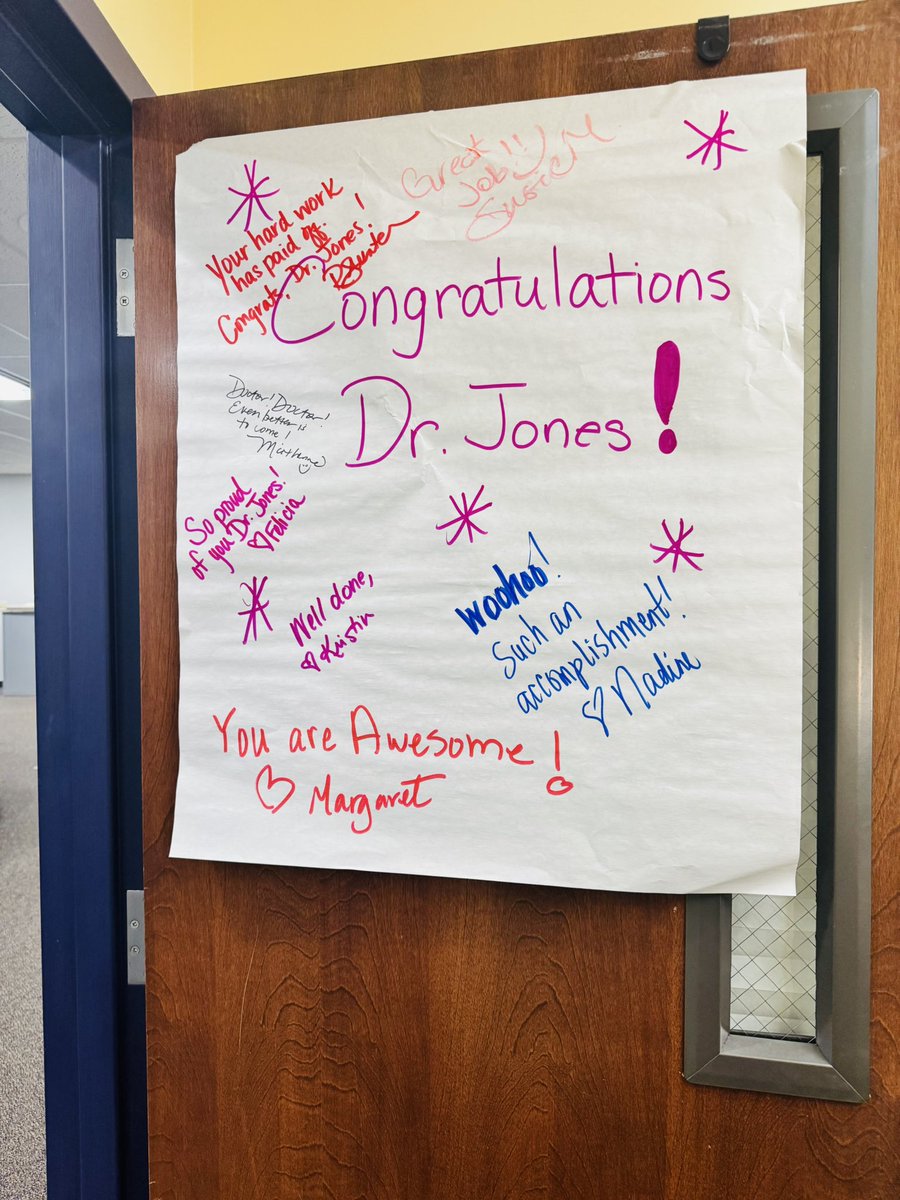 Great
Job!!!
Susie M
Your hard work
has paid off.
Congrats, Dr. Jones!
Congratulations
Dr. Jones!
Doctor! Doctor!
Even better is
to come!
So proud
of you Dr. Jones!
♡ Felicia
Well done,
♡ Kristin
woohoo!
Such an
accomplishment!
♡ Nadine
You are Awesome!
♡ Margaret